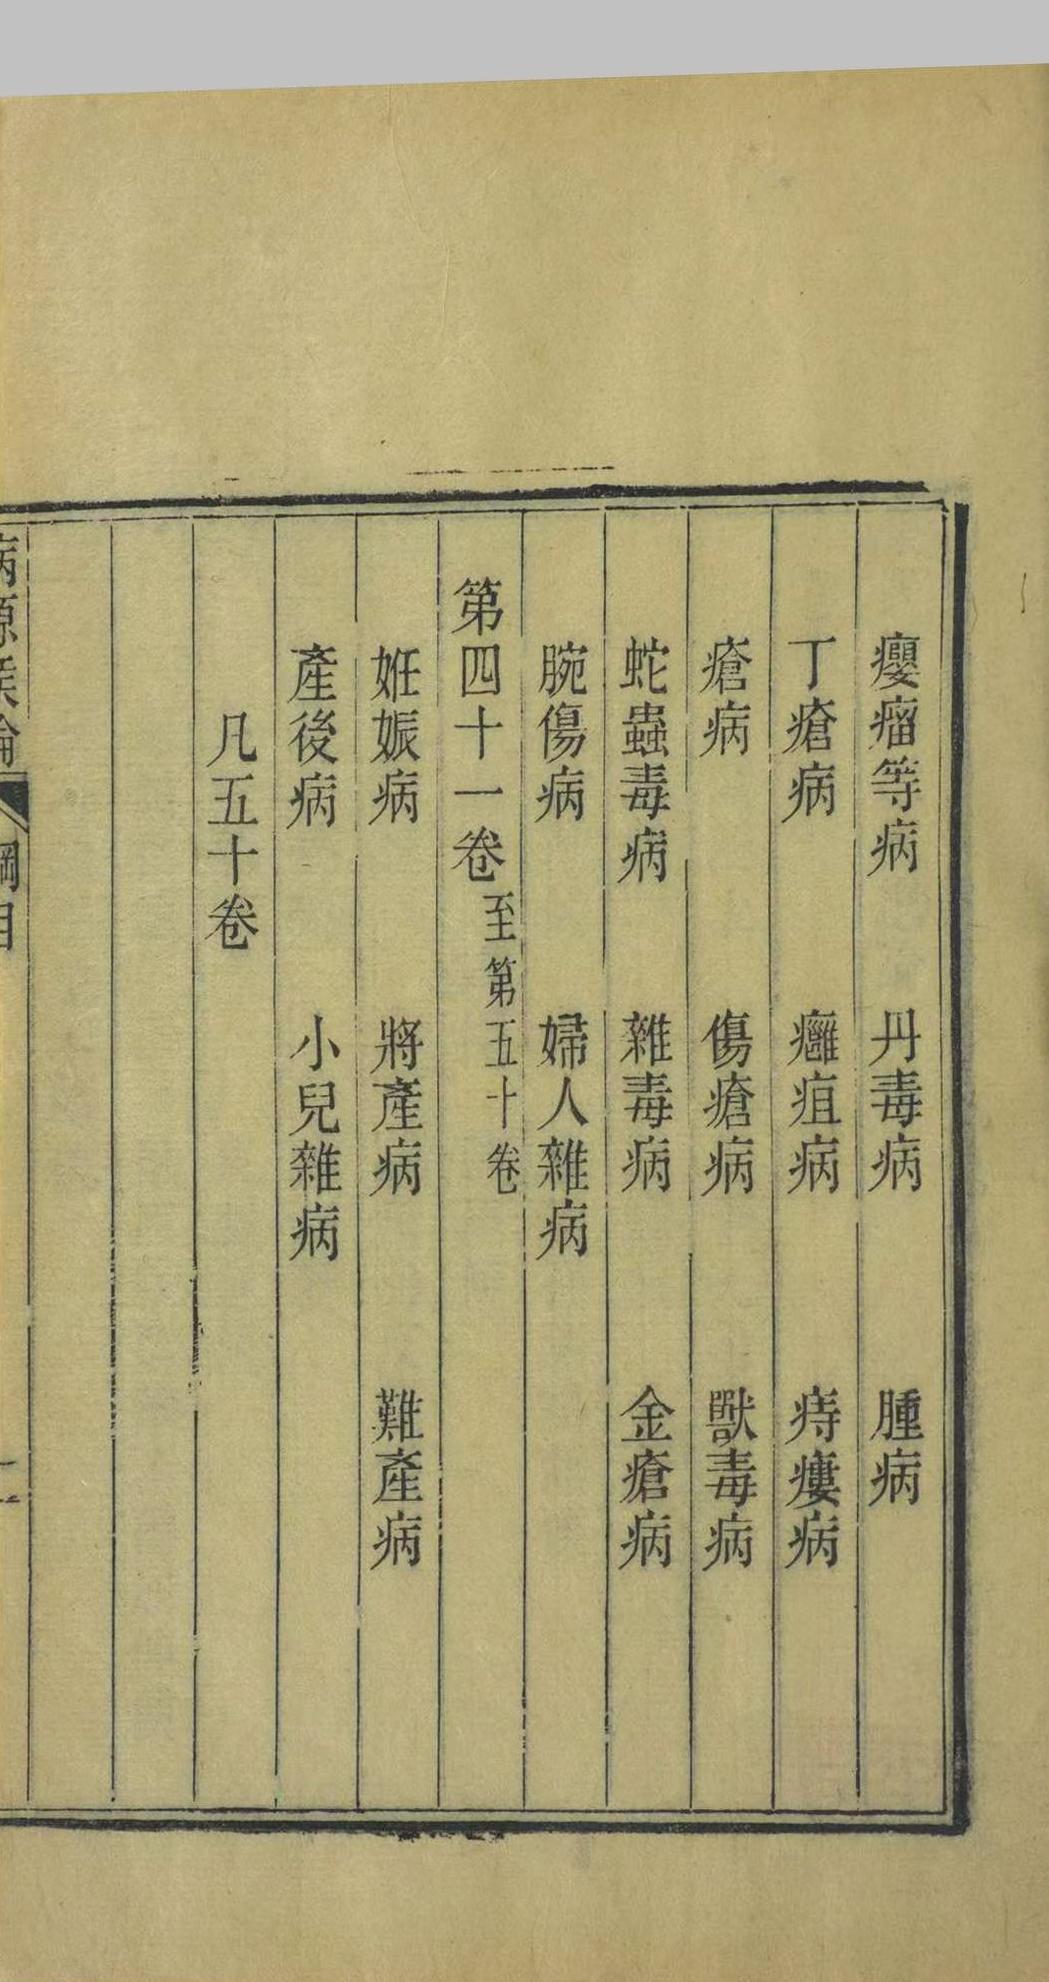 癭瘤等病　丹毒病　腫病
丁瘡病　癰疽病　痔瘻病
瘡病　傷瘡病　獸毒病
蛇蟲毒病　雜毒病　金瘡病
腕傷病　婦人雜病
第四十一卷至第五十卷
姙娠病　將產病　難產病
產後病　小兒雜病
凡五十卷
病源候論　綱目